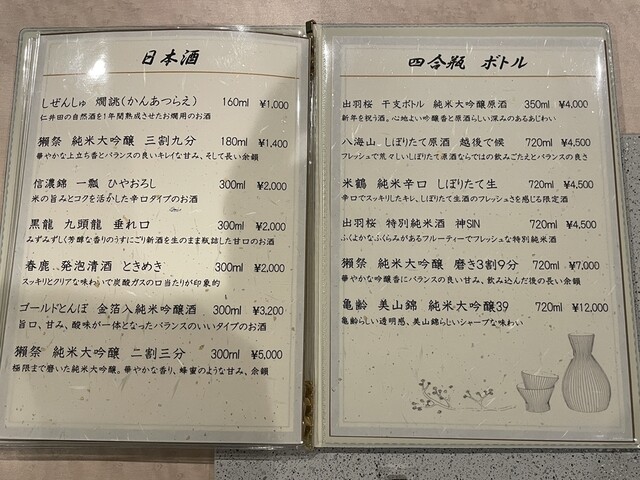 日本酒
しぜんしゅ 燗誂(かんあつらえ) 160ml ¥1,000
仁井田の自然酒を1年間熟成させたお燗用のお酒
獺祭 純米大吟醸 三割九分 180ml ¥1,400
華やかな上立ち香とバランスの良いキレイな甘み、そして長い余韻
信濃錦 一瓢 ひやおろし 300ml ¥2,000
米の旨みとコクを活かした辛口タイプのお酒
黒龍 九頭龍 垂れ口 300ml ¥2,000
みずみずしく芳醇な香りのうすにごり新酒を生のまま瓶詰した甘口のお酒
春鹿 発泡清酒 ときめき 300ml ¥2,000
スッキリとクリアな味わいで炭酸ガスの口当たりが印象的
ゴールドとんぼ 金箔入純米吟醸酒 300ml ¥3,200
旨口、甘み、酸味が一体となったバランスのいいタイプのお酒
獺祭 純米大吟醸 二割三分 300ml ¥5,000
極限まで磨いた純米大吟醸。華やかな香り、蜂蜜のような甘み、余韻
四合瓶 ボトル
出羽桜 干支ボトル 純米大吟醸原酒 350ml ¥4,000
新年を祝う酒。心地よい吟醸香と原酒らしい深みのあるあじわい
八海山 しぼりたて原酒 越後で候 720ml ¥4,500
フレッシュで荒々しいしぼりたて原酒ならではの飲みごたえとバランスの良さ
米鶴 純米辛口 しぼりたて生 720ml ¥4,500
辛口でスッキリしたキレ、しぼりたて生酒のフレッシュさを感じる限定酒
出羽桜 特別純米酒 神SIN 720ml ¥4,500
ふくよかなふくらみがあるフルーティーでフレッシュな特別純米酒
獺祭 純米大吟醸 磨き3割9分 720ml ¥7,000
華やかな吟醸香にバランスの良い甘み、飲み込んだ後の長い余韻
亀齢 美山錦 純米大吟醸39 720ml ¥12,000
亀齢らしい透明感、美山錦らしいシャープな味わい